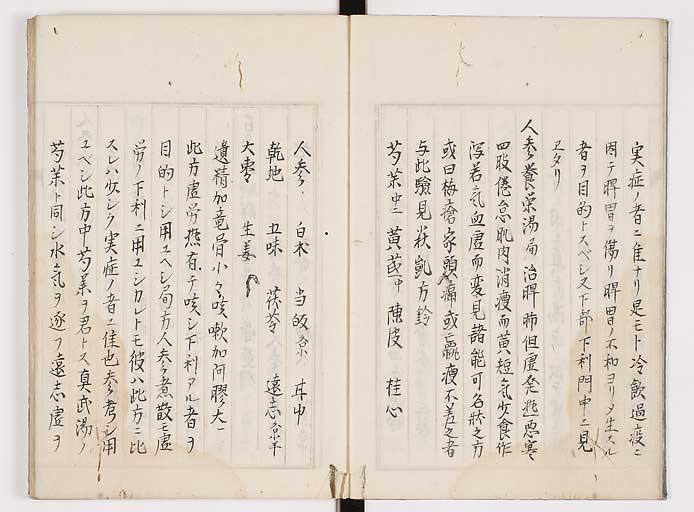 実症ノ者ニ佳ナリ是モト冷飲過度ニ
因テ脾胃ヲ傷リ脾胃ノ不和ヨリ〆生スル
者ヲ目的トスベシ又下部下利門中ニ見
ヱタリ
人参養栄湯局治脾肺倶虚発熱悪寒
四肢倦怠肌肉消痩而黄短氣少食作
瀉若氣血虚而変見諸証不能可名状之方
或曰梅瘡家頭痛或羸痩不差之者
与此驗見萩凱方鈴
芍薬 黄芪 陳皮 桂心
人参 白朮 当皈 甘
乾地 五味 茯苓 遠志
大棗 生姜
遺精加竜骨 咳嗽加阿膠大ニ
此方虚労熱有テ咳シ下利アル者ヲ
目的トシ用ユベシ局方人参煮散モ虚
労ノ下利ニ用ユシカレトモ彼ハ此方ニ比
スレハ少シク実症ノ者ニ佳也参考シ用
ユベシ此方中芍薬ヲ君トス真武湯ノ
芍薬ト同シ水氣ヲ逐フ遠志虚ヲ